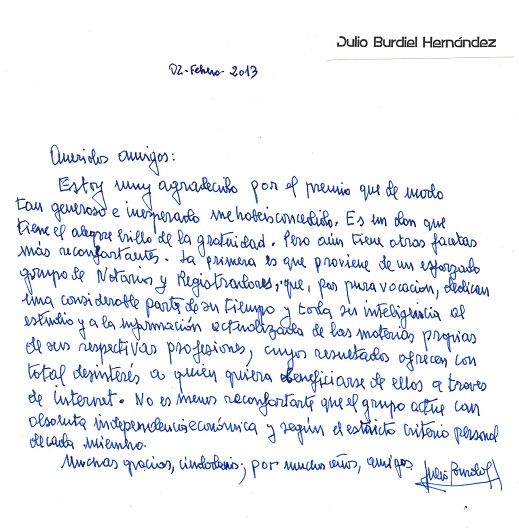 Julio Burdiel Hernández
02-Febrero-2013
Queridos amigos:
Estoy muy agradecido por el premio que de modo
tan generoso e inesperado me habéis concedido. Es un don que
tiene el alegre brillo de la gratuidad. Pero aún tiene otras facetas
más reconfortantes. La primera es que proviene de un esforzado
grupo de Notarios y Registradores, que, por pura vocación, dedican
una considerable parte de su tiempo y toda su inteligencia al
estudio y a la información actualizada de las materias propias
de sus respectivas profesiones, cuyos resultados ofrecen con
total desinterés a quien quiera beneficiarse de ellos a traves
de internet. No es menos reconfortante que el grupo actúe con
absoluta independencia económica y según el estricto criterio personal
de cada miembro.
Muchas gracias, ciudadanos; por muchos años, amigos
Julio Burdiel